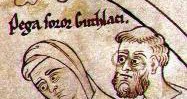 Pega soror Guthlaci.